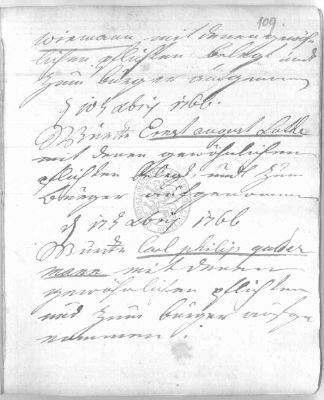 109.
Wiemann, mit denen gewöhn-
lichen pflichten belegt und
zum bürger aufgenom
d 10t april 1766.
Wurde Ernst August Lülke
mit denen gewöhnlichen
pflichten belegt und zum
Bürger aufgenommen
d 17t april 1766
Wurde Carl philip
mann mit denen
gewöhnlichen pflichten
und zum bürger aufge
nommen.